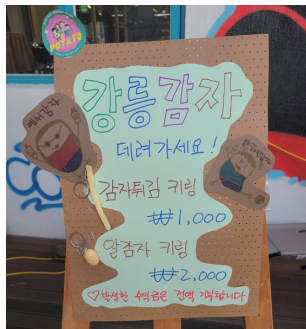 POTATO
강릉감자
데려가세요!
감자튀김 키링
₩1,000
알감자 키링
₩2,000
♡발생한 수익금은 전액 기부합니다